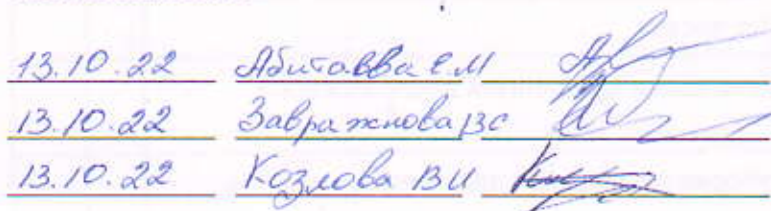 13.10.22 Абитаева Е.М
13.10.22 Завражнова ВС
13.10.22 Козлова ВИ